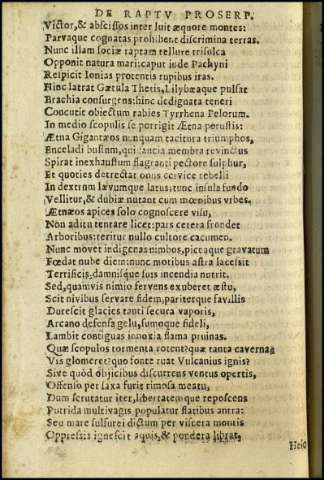 DE RAPTV PROSERP.
Victor, & abscissos inter luit æquore montes:
Parvaque cognatas prohibent discrimina terras.
Nunc illam sociæ raptam tellure trisulca
Opponit natura mari: caput inde Pachyni
Respicit Ionias protentis rupibus iras.
Hinc latrat Gætula Thetis, Lilybæaque pulsat
Brachia consurgens: hinc dedignata teneri
Concutit obiectum rabies Tyrrhena Pelorum.
In medio scopulis se porrigit Ætna perustis:
Ætna Giganteos nunquam tacitura triumphos,
Enceladi bustum, qui saucia membra revinctus
Spirat inexhaustum flagranti pectore sulphur,
Et quoties detrectat onus cervice rebelli
In dextrum lævumque latus: tunc insula fundo
Vellitur, & dubiæ nutant cum mœnibus vrbes.
Ætnæos apices solo cognoscere visu,
Non aditu tentare licet: pars cetera frondet
Arboribus: teritur nullo cultore cacumen.
Nunc movet indigenas nimbos, piceaque gravatum
Fœdat nube diem: nunc motibus astra lacessit
Terrificis, damnisque suis incendia nutrit.
Sed, quamvis nimio fervens exuberet æstu,
Scit nivibus servare fidem, pariterque favillis
Durescit glacies tanti secura vaporis,
Arcano defensa gelu, fumoque fideli,
Lambit contiguas innoxia flama pruinas.
Quæ scopulos tormenta rotent? quæ tanta cavernas
Vis glomeret? quo fonte ruat Vulcanius ignis?
Sive quòd obijcibus discurrens ventus opertis,
Offenso per saxa furit rimosa meatu,
Dum scrutatur iter, libertatemque reposcens
Putrida multivagis populatur flatibus antra:
Seu mare sulfurei dictum per viscera montis
Oppressis ignescit aquis, & pondera librat,
Heic